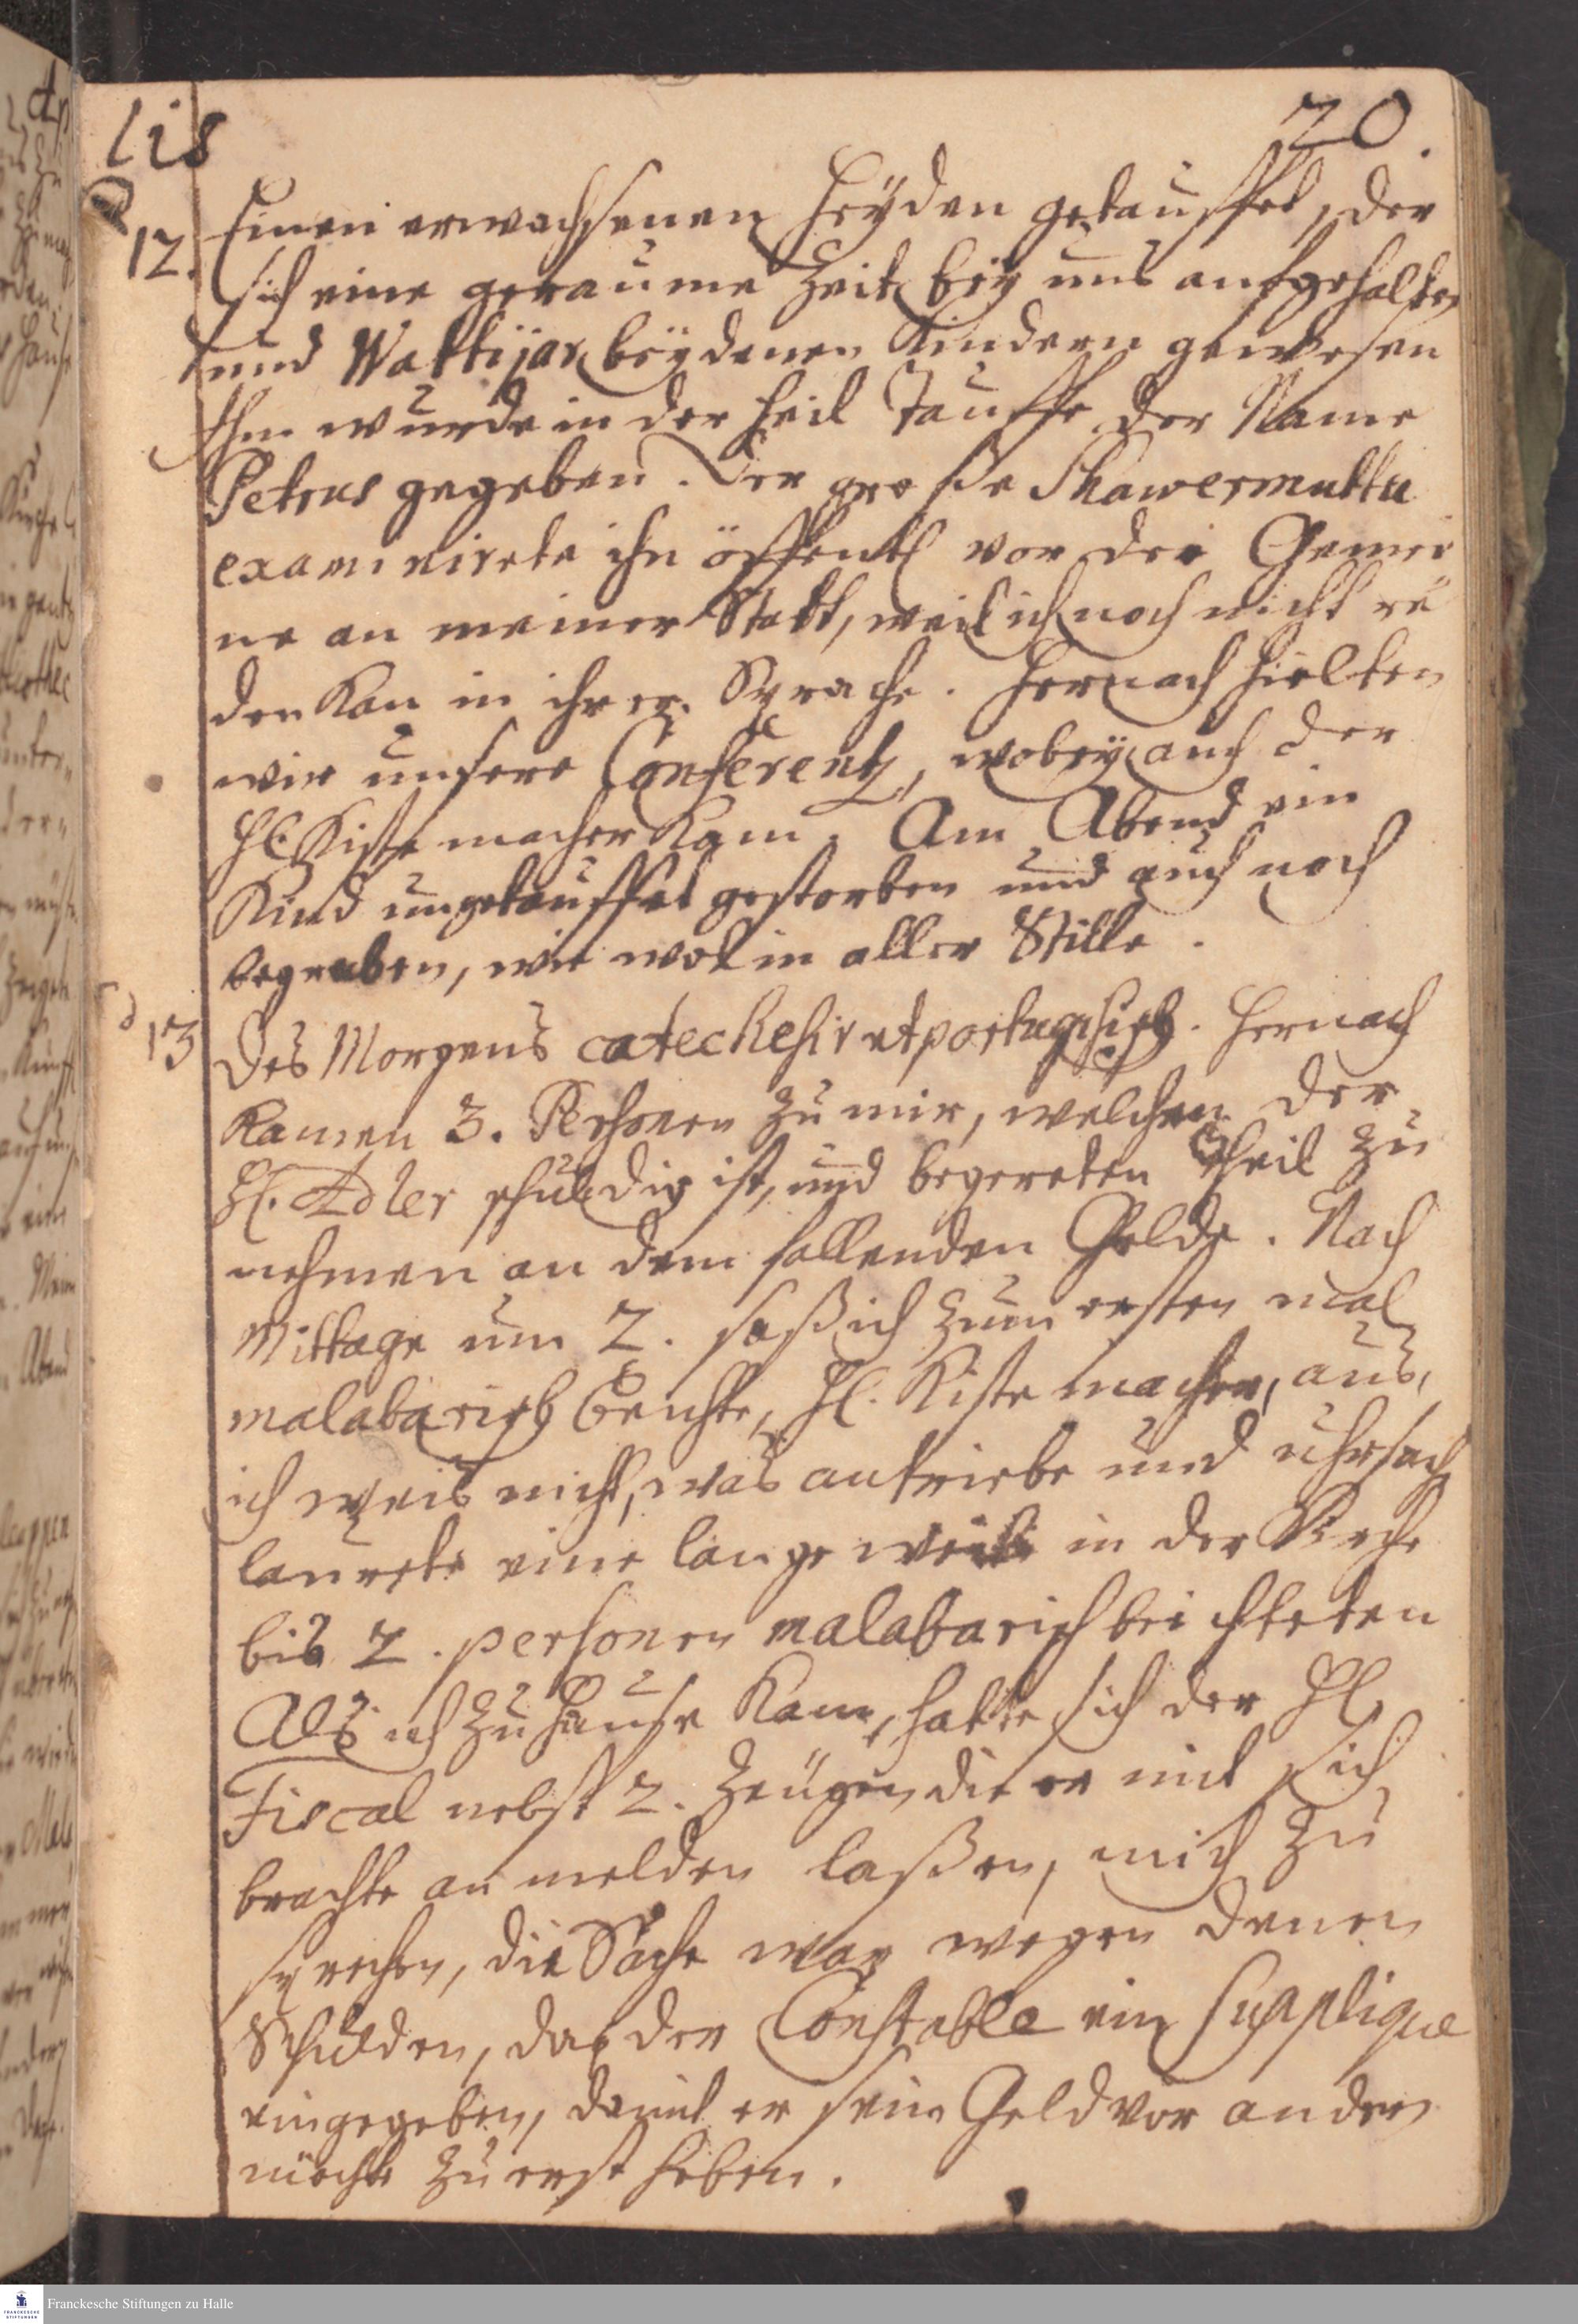 lis
20.
12. Einen erwachsenen Heyden getauffet, der
sich eine geraume Zeit bey uns aufgehalten
und Wattijar bey denen Kindern gewesen
Ihm wurde in der Heil Tauffe der Name
Petrus gegeben. Der große Shawermuttu
examinirete ihn öffentl vor der Gemei
ne an meiner Statt, weil ich noch nicht re
den kan in ihrer Sprache. Hernach hielten
wir unsere Conferentz, wobey auch der
Hl. Kistemacher kam. Am Abend ein
Kind ungetauffet gestorben und auch noch
begraben, wie wol in aller Stille.
13 Des Morgens catechesiret portugisisch. Hernach
kamen 3. Persohnen zu mir, welchen der
Hl. Adler schuldig ist, und begereten Theil zu
nehmen an dem fallenden Gelde. Nach
Mittage um 2. saß ich zum ersten mal
malabarisch Beichte, Hl. Kistemacher, aus,
ich weis nicht, was antriebe und uhrsach
laurete eine lange weile in der Kirche
bis 2. personen malabarisch beichteten
Als ich zu Hause kam, hatte sich der Hl.
Fiscal nebst 2. Zeugen die er mit sich
brachte an melden laßen, mich zu
sprechen, die Sache war wegen denen
Schulden, daß der Constable ein Supplique
eingegeben, damit er sein Geld vor andern
möchte zu erst heben.
Franckesche Stiftungen zu Halle